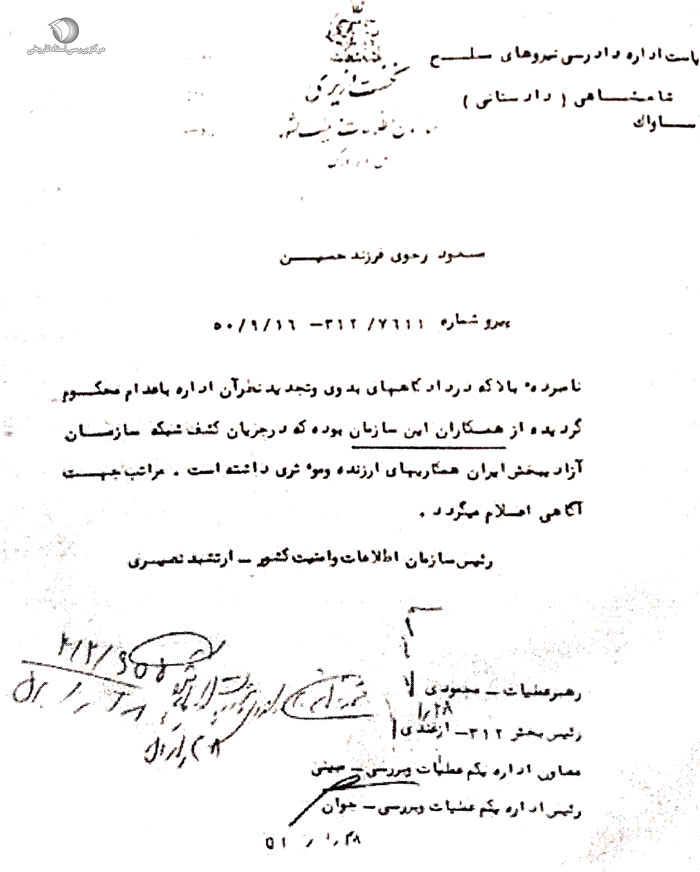 مرکز بررسی اسناد تاریخی
نخست وزیری
است اداره دادرسی نیروهای مسلح
شاهنشاهی ( دادستانی )
ساواک
مسعود رجوی فرزند حسین
پیرو شماره ۷٦۱۱/ ۳۱۲- ۵۰/۹/۱٦
نامبرده بالا که در دادگاههای بدوی وتجدید نظرآن اداره باعدام محکوم
گردیده از همکاران این سازمان بوده که درجریان کشف شبکه سازمان
آزاد یبخش ایران همکاریهای ارزنده وموء ثری داشته است . مراتب جهت
آگاهی اعلام میگردد .
رئیس سازمان اطلاعات وامنیت کشور - ارتشبد نصیری
رهبرعملیات - محمودی
۱٫۲۸
رئیس بخش ۳۱۲- ازغندی
معاون اداره یکم عملیات وبررسی -
رئیس اداره یکم عملیات وبررسی - جوان
۵۱ ٫ ۱ ٫ ۲۸